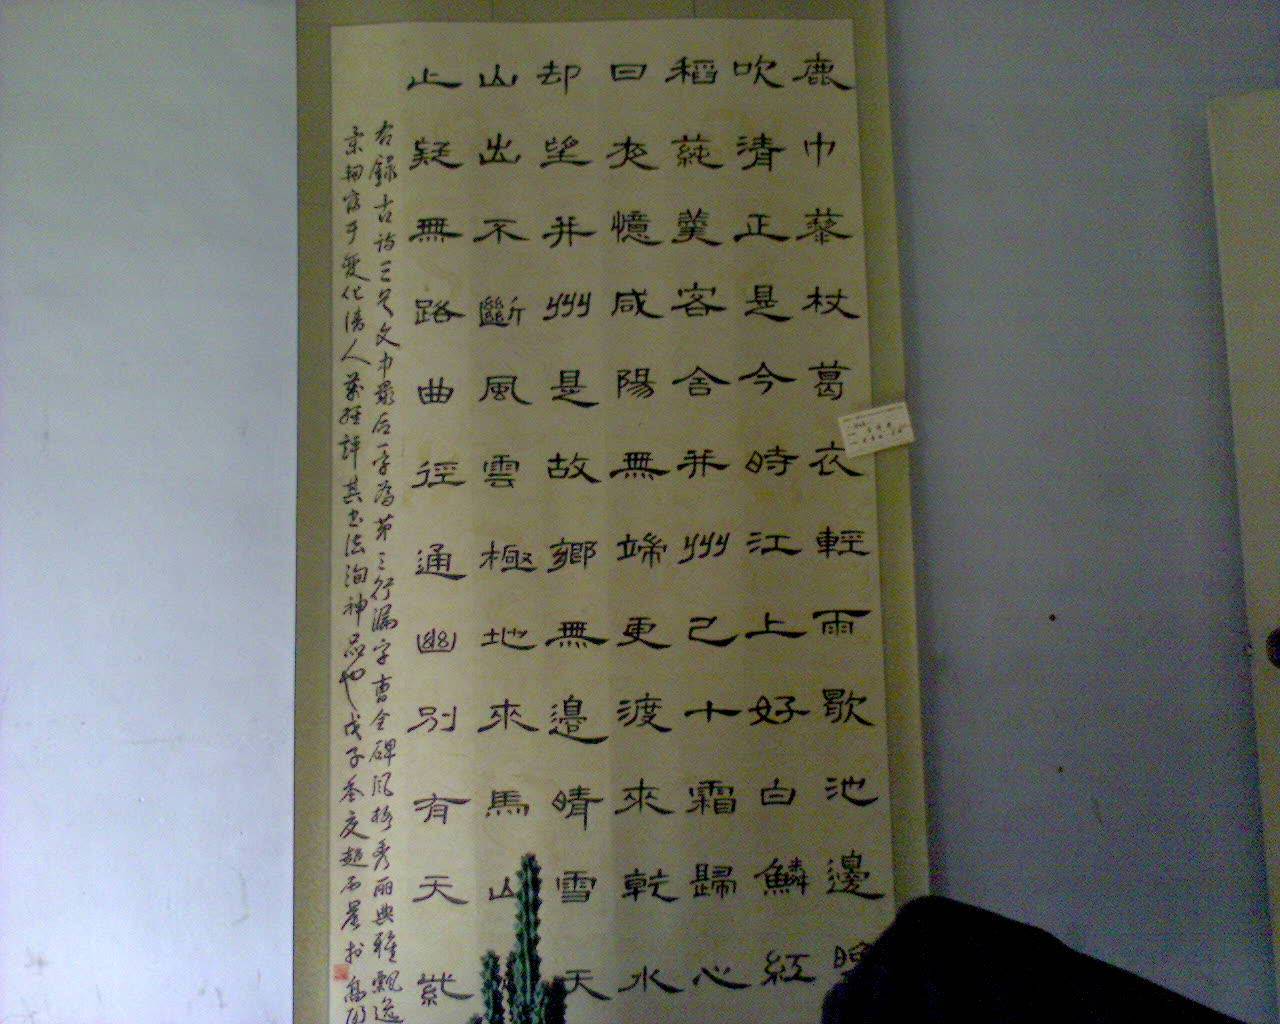 鹿巾藜杖葛衣輕雨歇池邊晚
吹清正是今時江上好白鱗紅
稻蒓羹客舍并州已十霜歸心
日夜憶咸陽無端更渡桒乾水
却望并州是故鄉無邊晴雪天
山出不斷風雲極地來馬山
止疑無路曲徑通幽別有天紫
右錄古詩三首文中最后一字為第三行漏字曹全碑風格秀丽典雅飄逸
变化清人萬經評其书法洵神品也戊子